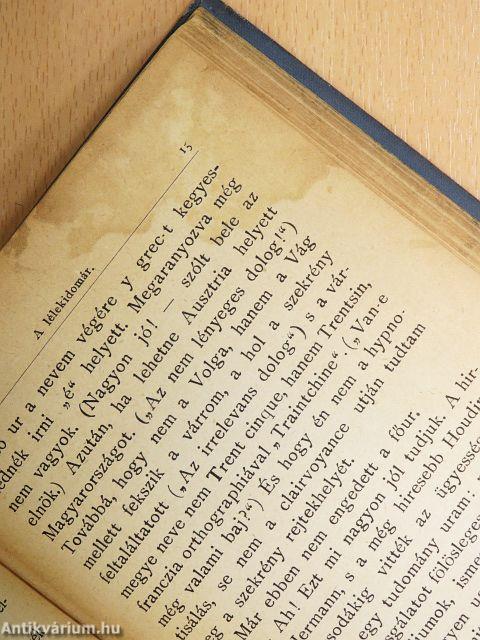 A lélekidomár.
15
ur a nevem végére y grec-t kegyes-
nék irni „é“ helyett. Megaranyozva még
nem vagyok. (Nagyon jó! — szólt bele az
elnök.) Azután, ha lehetne Ausztria helyett
Magyarországot. („Az nem lényeges dolog!“)
Továbbá, hogy nem a Volga, hanem a Vág
mellett fekszik a várrom, a hol a szekrény
feltaláltatott („Az irrelevans dolog“) s a vár-
megye neve nem Trent cinque, hanem Trentsin,
franczia orthographiával „Traintchine“. („Van-e
még valami baj?“) És hogy én nem a hypno-
tisálás, se nem a clairvoyance utján tudtam
a szekrény rejtekhelyét.
Már ebben nem engedett a főur.
Ah! Ezt mi nagyon jól tudjuk. A hir-
ermann, s a még hiresebb Houdin
sodákig vitték az ügyesség
egy tudomány uram:
gálatot fölösleges
umok, ismer
Antikvárium.hu